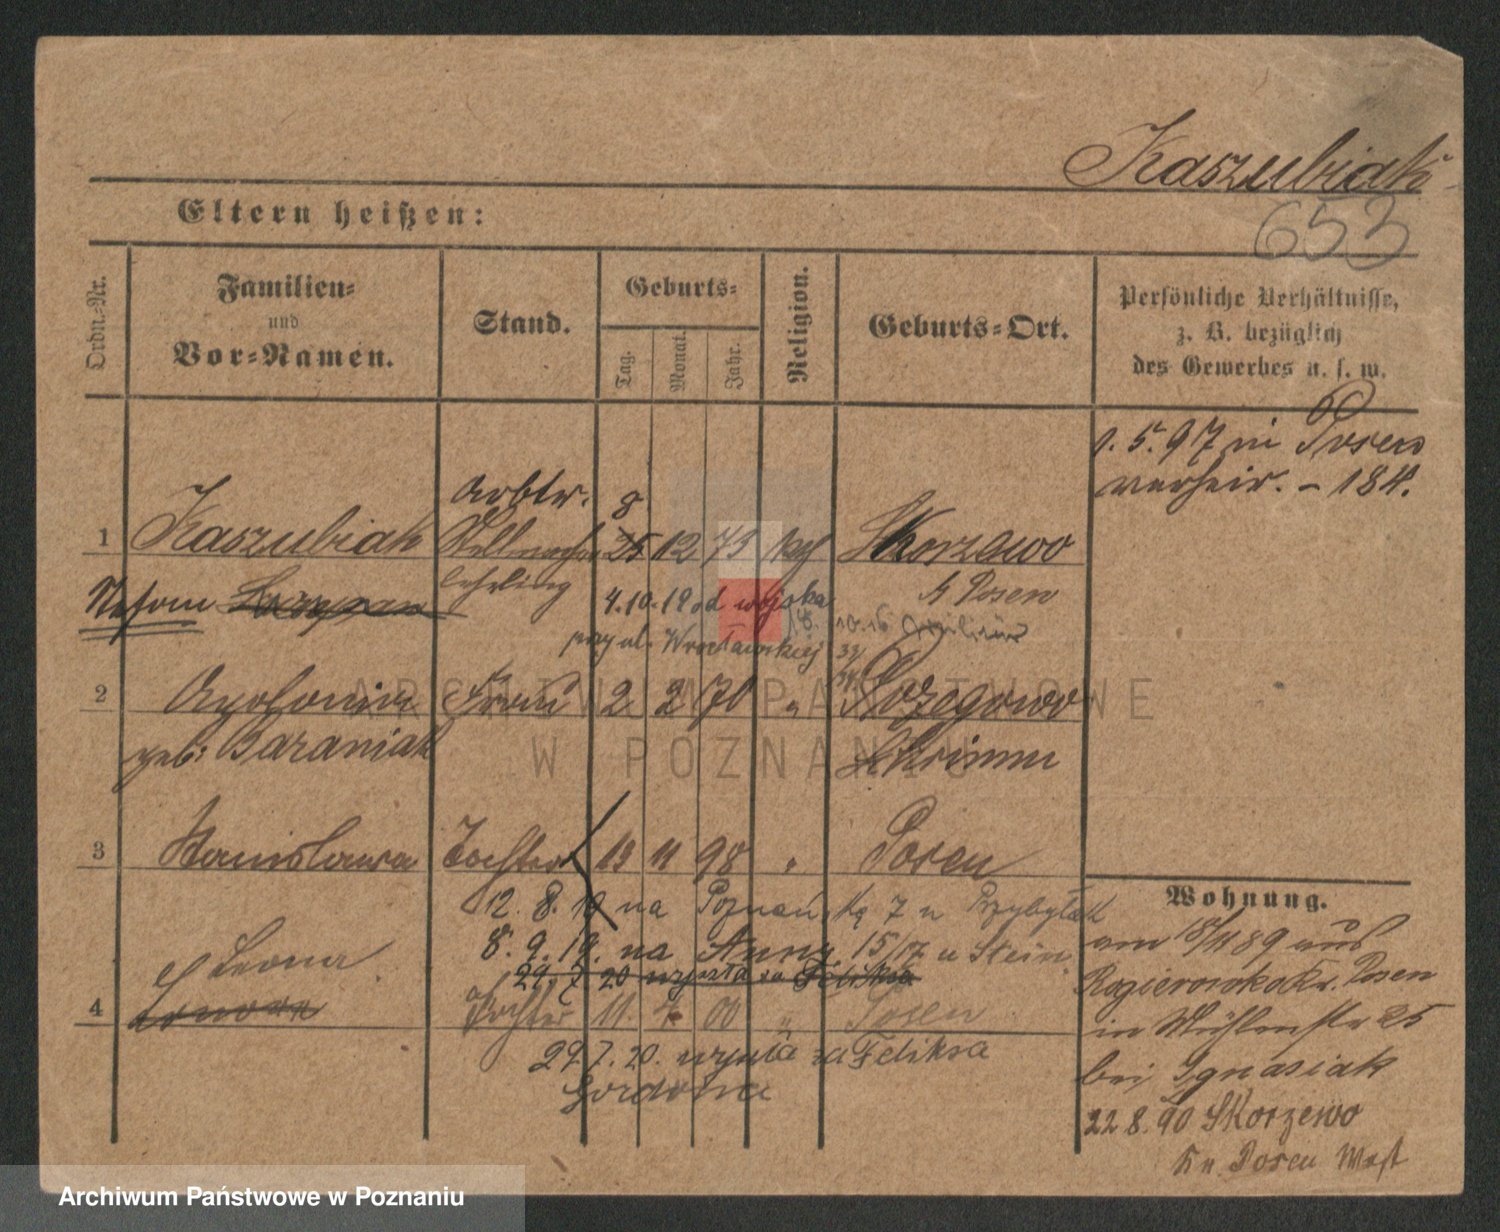 Kaszubiak
653
Eltern heißen:
Ordn.-Nr.
Familien- und Vor-Namen.
Stand.
Geburts-
Tag.
Monat.
Jahr.
Religion.
Geburts-Ort.
Persönliche Verhältnisse,
z. B. bezüglich
des Gewerbes u. s. w.
1.5.97 in Posen
verheir. - 184.
Arbtr. 8
1 Kaszubiak Stellmacher 25 12 73 kath Skorzewo
Lehrling Kr Posen
4.10.19 od wojska
przy ul. Wrocławskiej
2 Apolonia Frau 2 2 70 " Pozegowo
geb. Baraniak Schrimm
3 Stanislawa Tochter 13 11 98 " Posen
12. 8. 19 na Poznań. 7 u Przybylak
8. 9. 19. na Anny 15/17 u Stein
29 7 20 wyszła za Feliksa
Leona
4 Tochter 11. 7 00 " Posen
29.7.20. wyszła za Feliksa
Gordona
Wohnung.
am 18/11 89 aus
Rogierowka Kr. Posen
in Mühlenstr 25
bei Ignasiak
22.8.90 Skorzewo
Kr. Posen West
ARCHIWUM PAŃSTWOWE
W POZNANIU
Archiwum Państwowe w Poznaniu